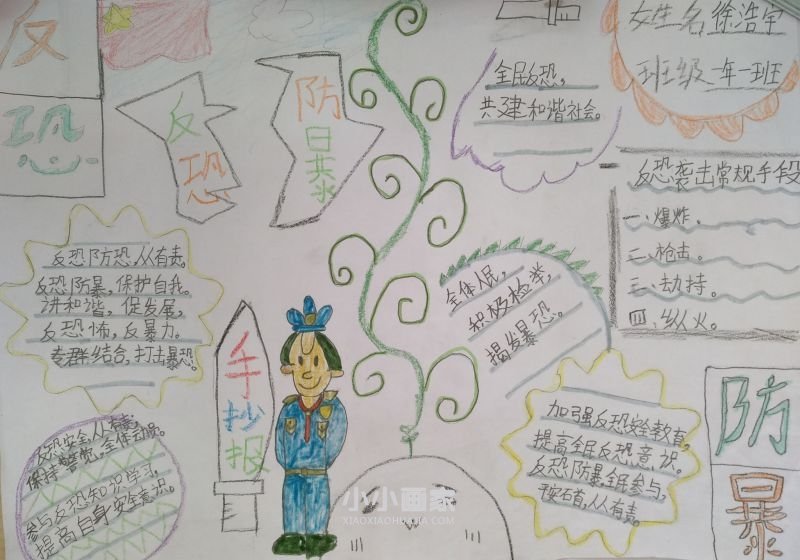 反
恐
反
恐
防
暴
全民反恐，
共建和谐社会。
女生名徐浩宇
班级一年一班
反恐袭击常规手段
一、爆炸．
二、枪击。
三、劫持。
四、纵火。
反恐防恐，从有责，
反恐防暴，保护自我。
讲和谐，促发展，
反恐怖，反暴力。
专群结合，打击暴恐。
全体人民，
积极检举，
揭发暴恐。
手
抄
报
反恐安全，人有责，
保持警觉，全体动员。
参与反恐知识学习，
提高自身安全意识。
加强反恐安全教育，
提高全民反恐意识。
反恐防暴全民参与，
平安石首，人人有责。
防
暴
小小画家
XIAOXIAOHUAJIA.COM